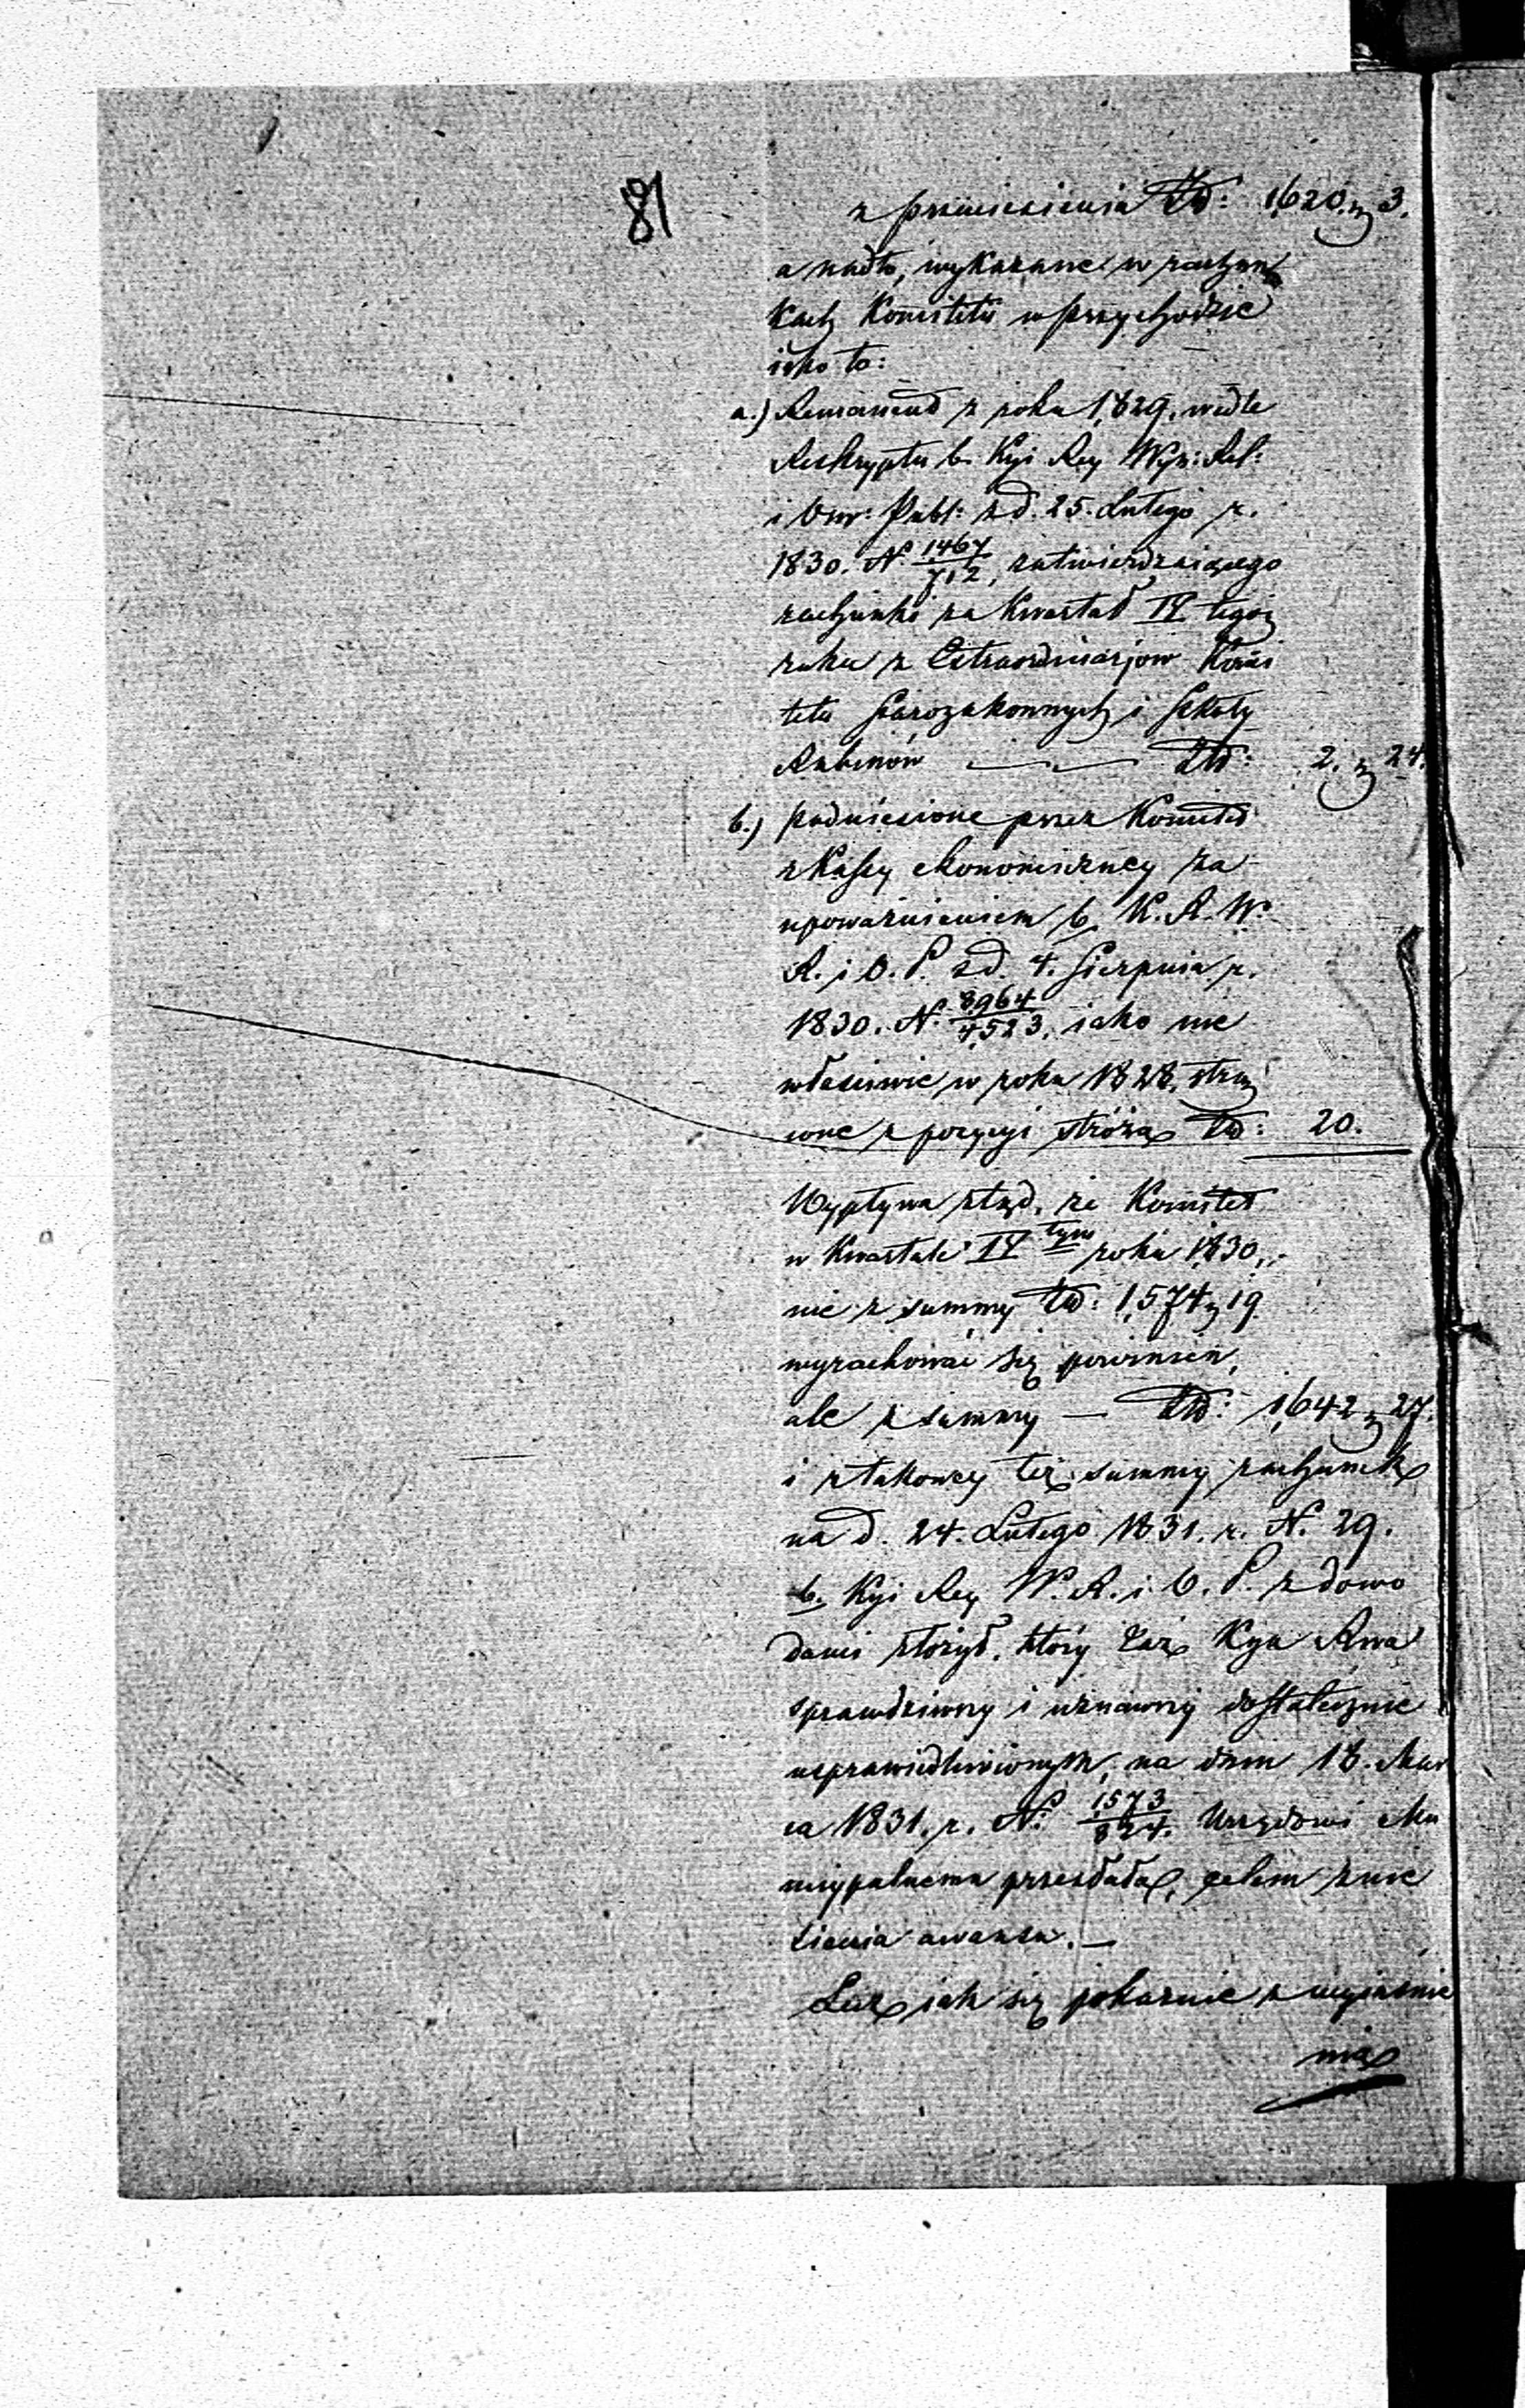 81
z przeniesienia Złp: 1620. gr 3.
a nadto, wykazane w rachun
kach Komitetu w przychodzie
iako to:
a.) Remanend z roku 1829, wedle
Reskryptu b. Kyi Rej Wyz: Rel:
i Osw: Publ: z d. 25. Lutego r.
1830. N. 1467/712, zatwierdzaiącego
rachunki za Kwartał IV tegoż
roku z Extraordinarjow Komi
tetu Starozakonnych i Szkoły
Rabinów — — Złp: 2. gr 24.
b.) podniesione przez Komitet
z Kassy ekonomiczney za
upoważnieniem b. K. R. W.
R. i O. P. z d. 4. Sierpnia r.
1830. N. 8964/4523, iako nie
właściwie w roku 1828,
z pozycyi stróża Złp: 20.
Wypływa ztąd, że Komitet
w Kwartale IV tym roku 1830,
nie z summy Złp: 1,574 gr 19
wyrachować się powinien,
ale z summy — Złp: 1,642 gr 27.
i z takowey też summy rachunek
na d. 24. Lutego 1831. r. N. 29.
b. Kyi Rej W. R. i O. P. z dowo
dami złożył, który taż Kya Rwa
sprawdziwszy i uznawszy dostatecznie
usprawiedliwionym, na dniu 18. Mar
ca 1831. r. N. 1573/824. Urzędowi Mu
nicypalnemu przesłała, celem znie
sienia awansu. —
Lecz iak się pokazuie z wyiaśnie
nia